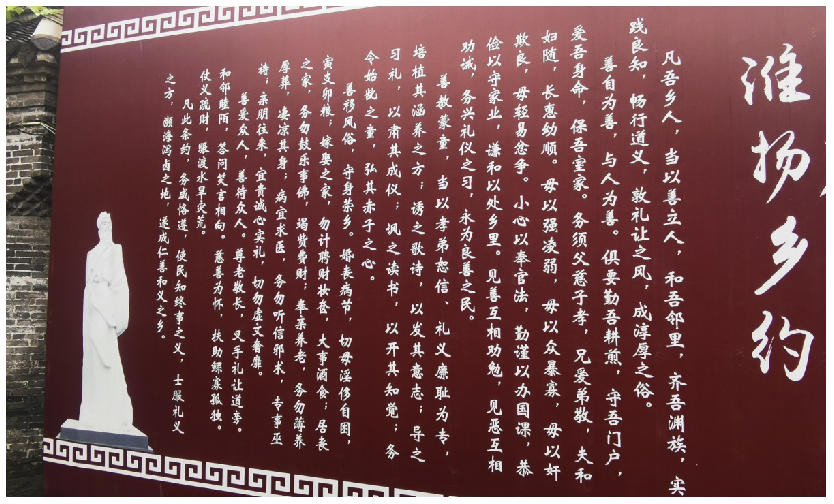 淮扬乡约
凡吾乡人，当以善立人，和吾邻里，齐吾渊族，实
践良知，畅行道义，敦礼让之风，成淳厚之俗。
善自为善，与人为善。俱要勤吾耕煎，守吾门户，
爱吾身命，保吾室家。务须父慈子孝，兄爱弟敬，夫和
妇随，长惠幼顺。毋以强凌弱，毋以众暴寡，毋以奸
欺良，毋轻易忿争。小心以奉官法，勤谨以办国课，恭
俭以守家业，谦和以处乡里。见善互相劝勉，见恶互相
劝诫，务兴礼仪之习，永为良善之民。
善教蒙童，当以孝弟忠信、礼义廉耻为专，
培植其涵养之方；诱之歌诗，以发其意志；导之
习礼，以肃其威仪；讽之读书，以开其知觉；务
令幼稚之童，弘其赤子之心。
善移风俗，守身荣乡。婚丧病节，切毋淫侈自困，
寅支卯粮；嫁娶之家，勿计聘财妆奁，大事酒食；居丧
之家，务勿鼓乐事佛，竭赀费财；奉亲养老，务勿薄养
厚葬，凄凉其身；病宜求医，务勿听信邪术，专事巫
祷；亲朋往来，宜贵诚心实礼，切勿虚文奢靡。
善爱众人，善待众人。尊老敬长，叉手礼让道旁。
和邻睦陌，答问笑言相向。慈善为怀，扶助鳏寡孤独。
仗义疏财，赈渡水旱灾荒。
凡此条约，务咸恪遵，使民知终事之义，士服礼义
之方，濒海泻卤之地，遂成仁善和义之乡。